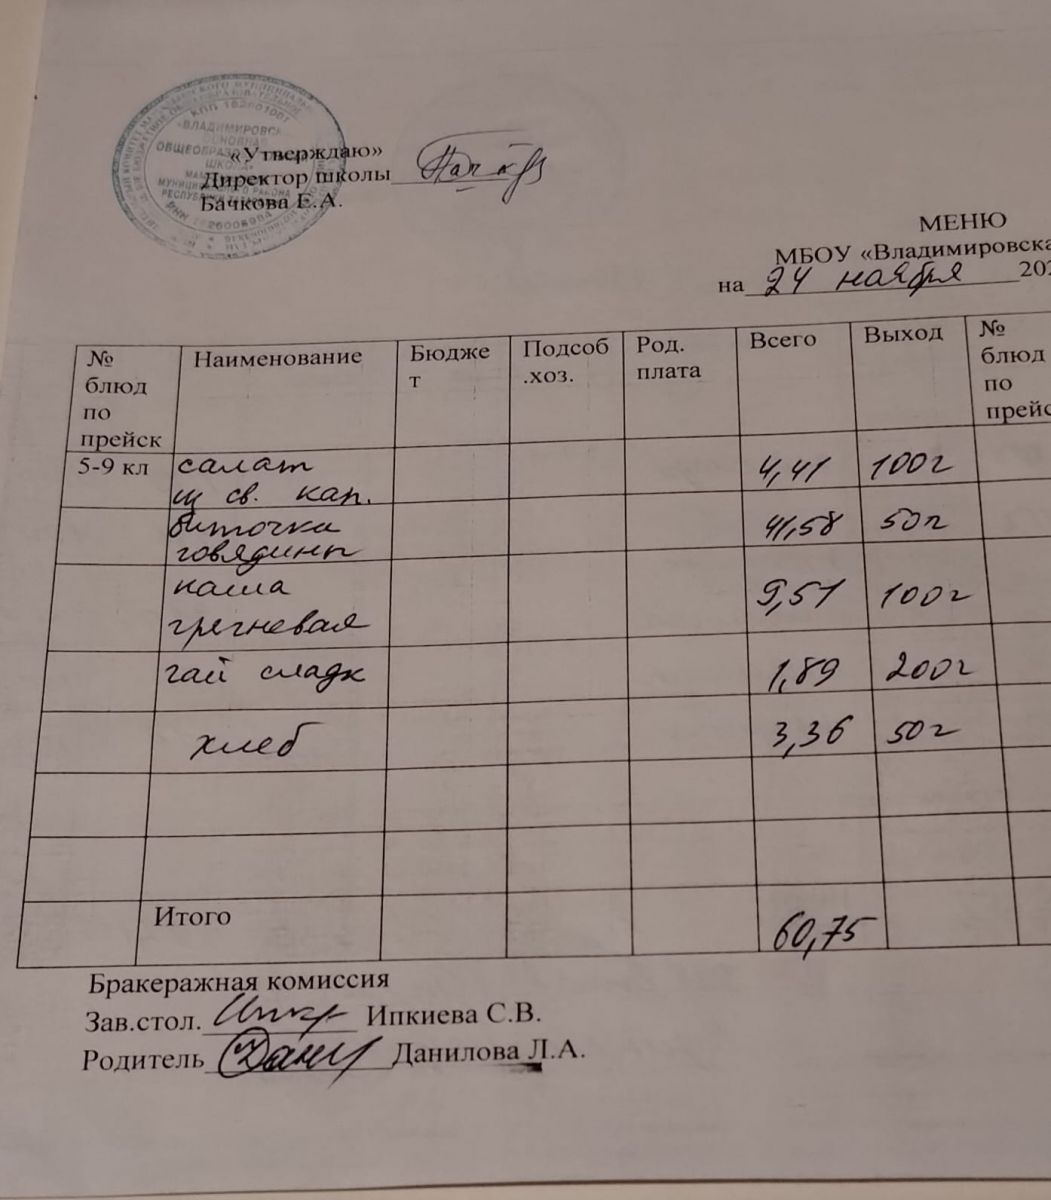 КПП 162601001
«ВЛАДИМИРОВСК
ОСНОВНАЯ
ОБЩЕОБРАЗ
ШКОЛА»
МУНИЦИПАЛЬНОГО РАЙОНА
«Утверждаю»
Директор школы
Бачкова Е.А.
МЕНЮ
МБОУ «Владимировска
на 24 ноября 202
№ блюд по прейск Наименование Бюджет Подсоб.хоз. Род. плата Всего Выход № блюд по прейс
5-9 кл салат 4,41 100г
из св. кап.
биточка 41,58 50г
говядины
каша 9,51 100г
гречневая
чай сладк 1,89 200г
хлеб 3,36 50г
Итого 60,75
Бракеражная комиссия
Зав.стол. Ипкиева С.В.
Родитель Данилова Л.А.